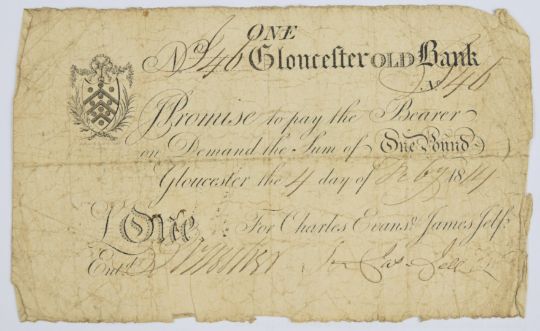 ONE
No J46 Gloucester OLD Bank
No J46
I Promise to pay the Bearer
on Demand the Sum of One Pound
Gloucester the 4 day of Feby 1814
£ One. For Charles Evans & James Jelf.
Entd